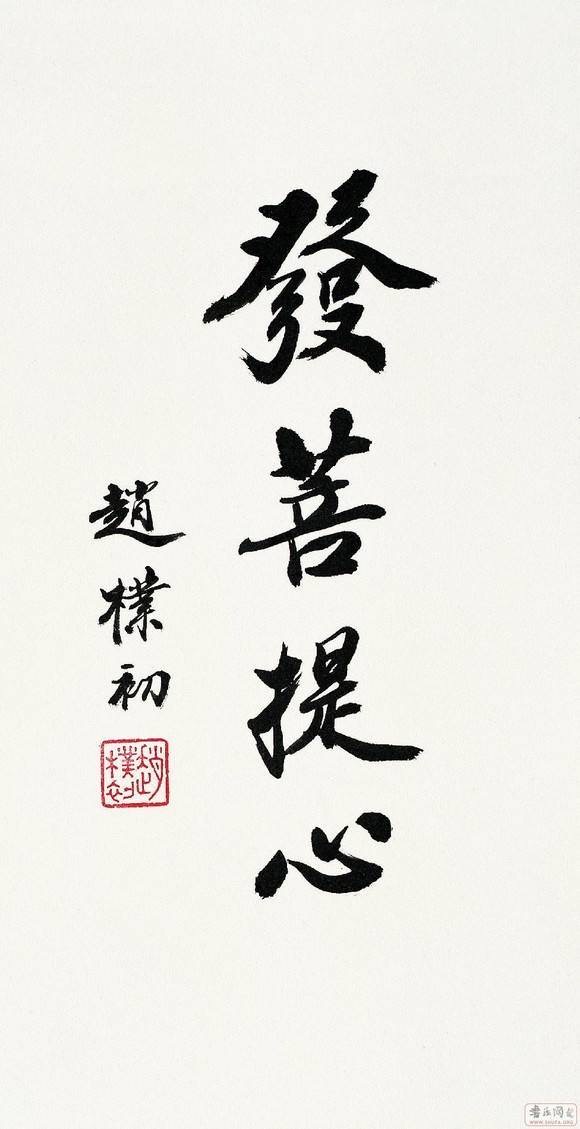 發菩提心
趙樸初
趙樸初
书法网
WWW.SHUFA.ORG